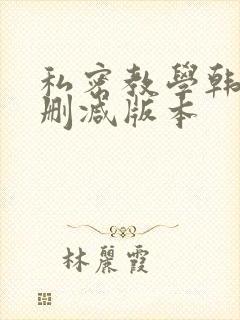 私密教學韩
删减版本
林麗霞